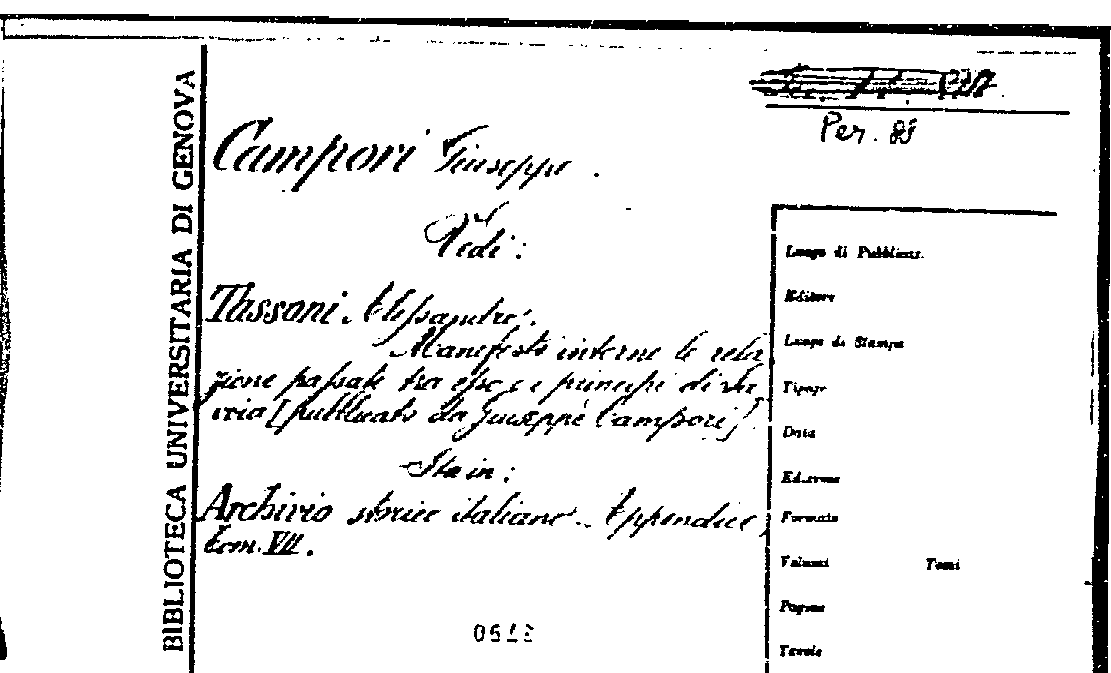 BIBLIOTECA UNIVERSITARIA DI GENOVA
Per. 85
Campori Giuseppe.
Vedi:
Tassoni Alessandro.
Manifesto intorno le rela
zione passate tra esso e i principi di Sa
voia [pubblicato da Giuseppe Campori]
Sta in:
Archivio storico italiano. Appendice,
tom. VII.
Luogo di Pubblicaz.
Editore
Luogo di Stampa
Tipogr
Data
Edizione
Formato
Volumi Tomi
Pagine
Tavole